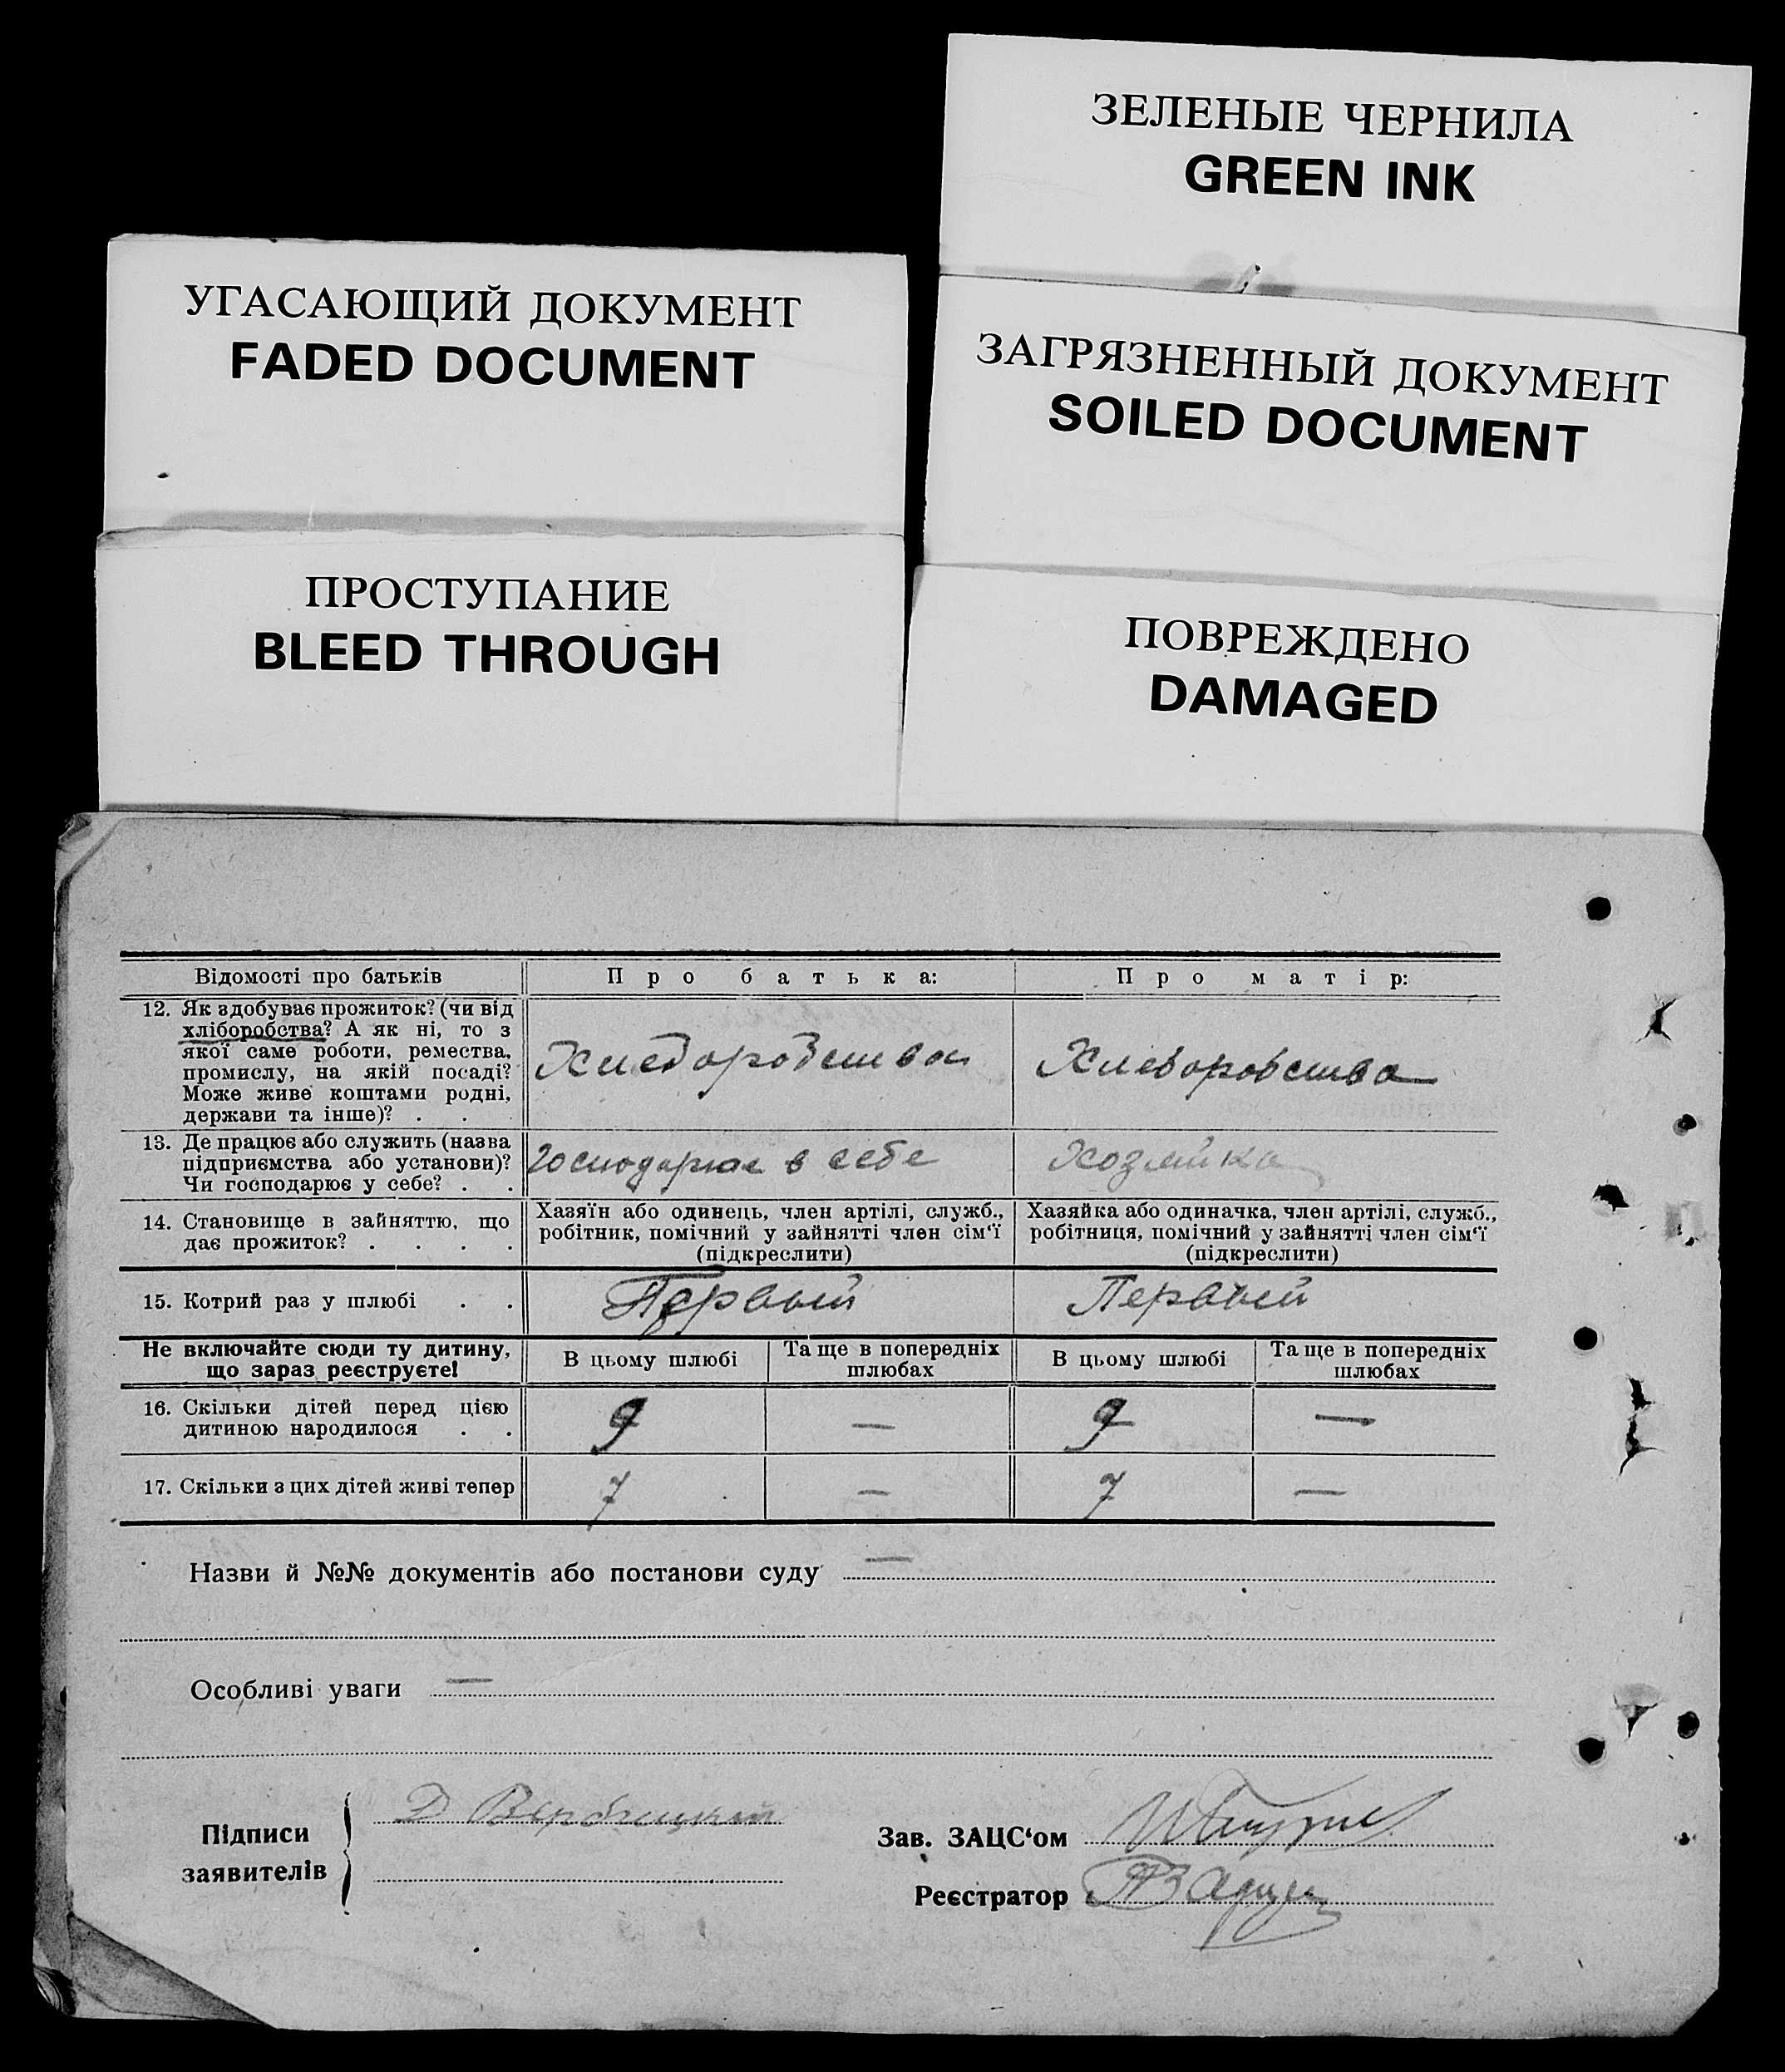 ЗЕЛЕНЫЕ ЧЕРНИЛА
GREEN INK
УГАСАЮЩИЙ ДОКУМЕНТ
FADED DOCUMENT
ЗАГРЯЗНЕННЫЙ ДОКУМЕНТ
SOILED DOCUMENT
ПРОСТУПАНИЕ
BLEED THROUGH
ПОВРЕЖДЕНО
DAMAGED
Відомості про батьків
Про батька:
Про матір:
12. Як здобуває прожиток? (чи від
хліборобства? А як ні, то з
якої саме роботи, ремества,
промислу, на якій посаді?
Може живе коштами родні,
держави та інше)? . .
Хлеборобства
Хлеборобства
13. Де працює або служить (назва
підприємства або установи)?
Чи господарює у себе? . .
Господарює в себе
Хозяйка
14. Становище в зайняттю, що
дає прожиток? . . . .
Хазяїн або одинець, член артілі, служб.,
робітник, помічний у зайнятті член сім‘ї
(підкреслити)
Хазяйка або одиначка, член артілі, служб.,
робітниця, помічний у зайнятті член сім‘ї
(підкреслити)
15. Котрий раз у шлюбі . .
Первый
Первый
Не включайте сюди ту дитину,
що зараз реєструєте!
В цьому шлюбі
Та ще в попередніх
шлюбах
В цьому шлюбі
Та ще в попередніх
шлюбах
16. Скільки дітей перед цією
дитиною народилося . .
9
—
9
—
17. Скільки з цих дітей живі тепер
7
—
7
—
Назви й №№ документів або постанови суду —
Особливі уваги —
Підписи
заявителів
Д Вербицкий
Зав. ЗАЦС‘ом
Реєстратор